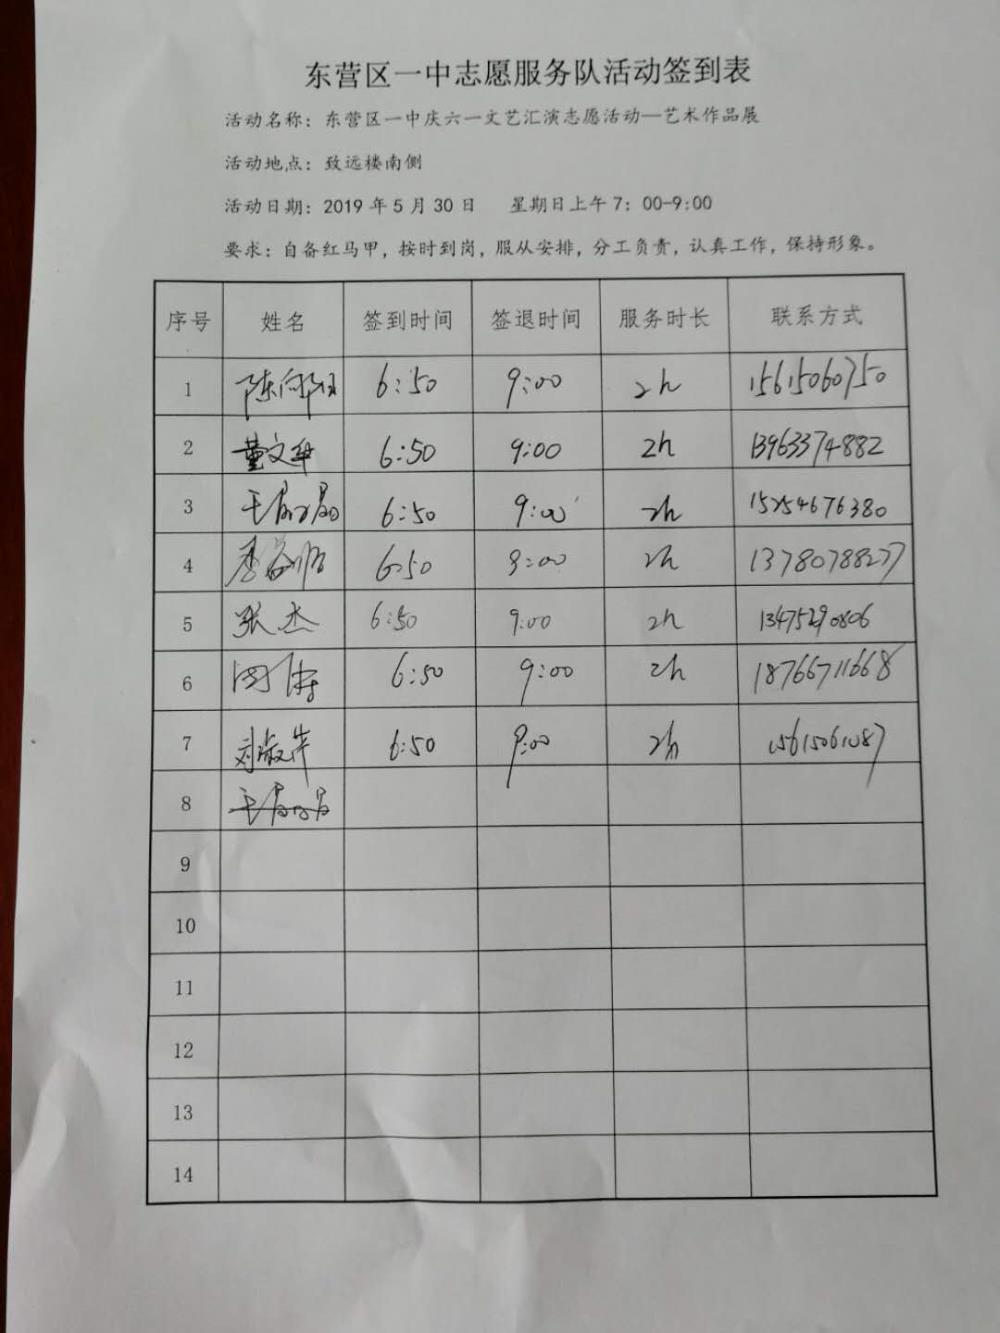 东营区一中志愿服务队活动签到表
活动名称：东营区一中庆六一文艺汇演志愿活动—艺术作品展
活动地点：致远楼南侧
活动日期：2019 年 5 月 30 日 星期日上午 7：00-9:00
要求：自备红马甲，按时到岗，服从安排，分工负责，认真工作，保持形象。
序号 姓名 签到时间 签退时间 服务时长 联系方式
1 陈向阳 6:50 9:00 2h 15615060750
2 董文华 6:50 9:00 2h 13963374882
3 6:50 9:00 2h 15254676380
4 6:50 9:00 2h 13780788277
5 张杰 6:50 9:00 2h 13475290806
6 周涛 6:50 9:00 2h 18766711668
7 刘淑萍 6:50 9:00 2h 15615061087
8
9
10
11
12
13
14